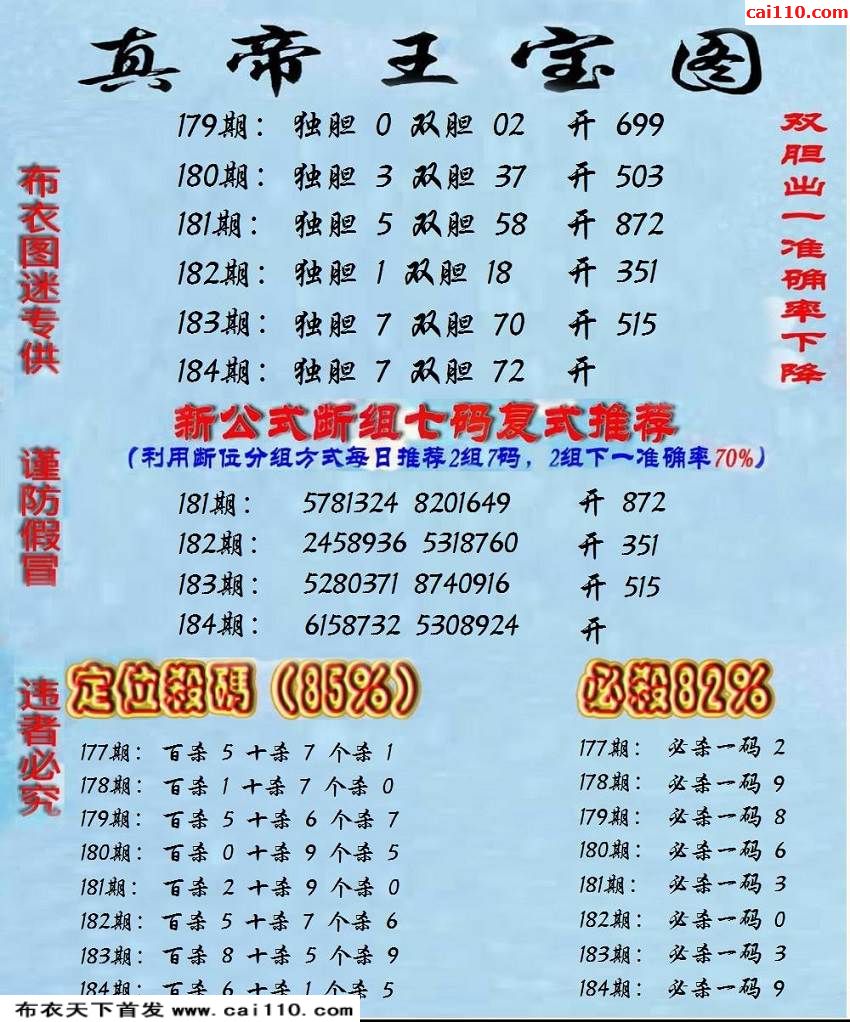 cai110.com
真帝王宝图
179期： 独胆 0 双胆 02 开 699
180期： 独胆 3 双胆 37 开 503
181期： 独胆 5 双胆 58 开 872
182期： 独胆 1 双胆 18 开 351
183期： 独胆 7 双胆 70 开 515
184期： 独胆 7 双胆 72 开
布衣图迷专供
谨防假冒
违者必究
双胆出一准确率下降
新公式断组七码复式推荐
（利用断位分组方式每日推荐2组7码，2组下一准确率70%）
181期： 5781324 8201649 开 872
182期： 2458936 5318760 开 351
183期： 5280371 8740916 开 515
184期： 6158732 5308924 开
定位殺碼（85%）
177期： 百杀 5 十杀 7 个杀 1
178期： 百杀 1 十杀 7 个杀 0
179期： 百杀 5 十杀 6 个杀 7
180期： 百杀 0 十杀 9 个杀 5
181期： 百杀 2 十杀 9 个杀 0
182期： 百杀 5 十杀 7 个杀 6
183期： 百杀 8 十杀 5 个杀 9
184期： 百杀 6 十杀 1 个杀 5
必殺82%
177期： 必杀一码 2
178期： 必杀一码 9
179期： 必杀一码 8
180期： 必杀一码 6
181期： 必杀一码 3
182期： 必杀一码 0
183期： 必杀一码 3
184期： 必杀一码 9
布衣天下首发 www.cai110.com